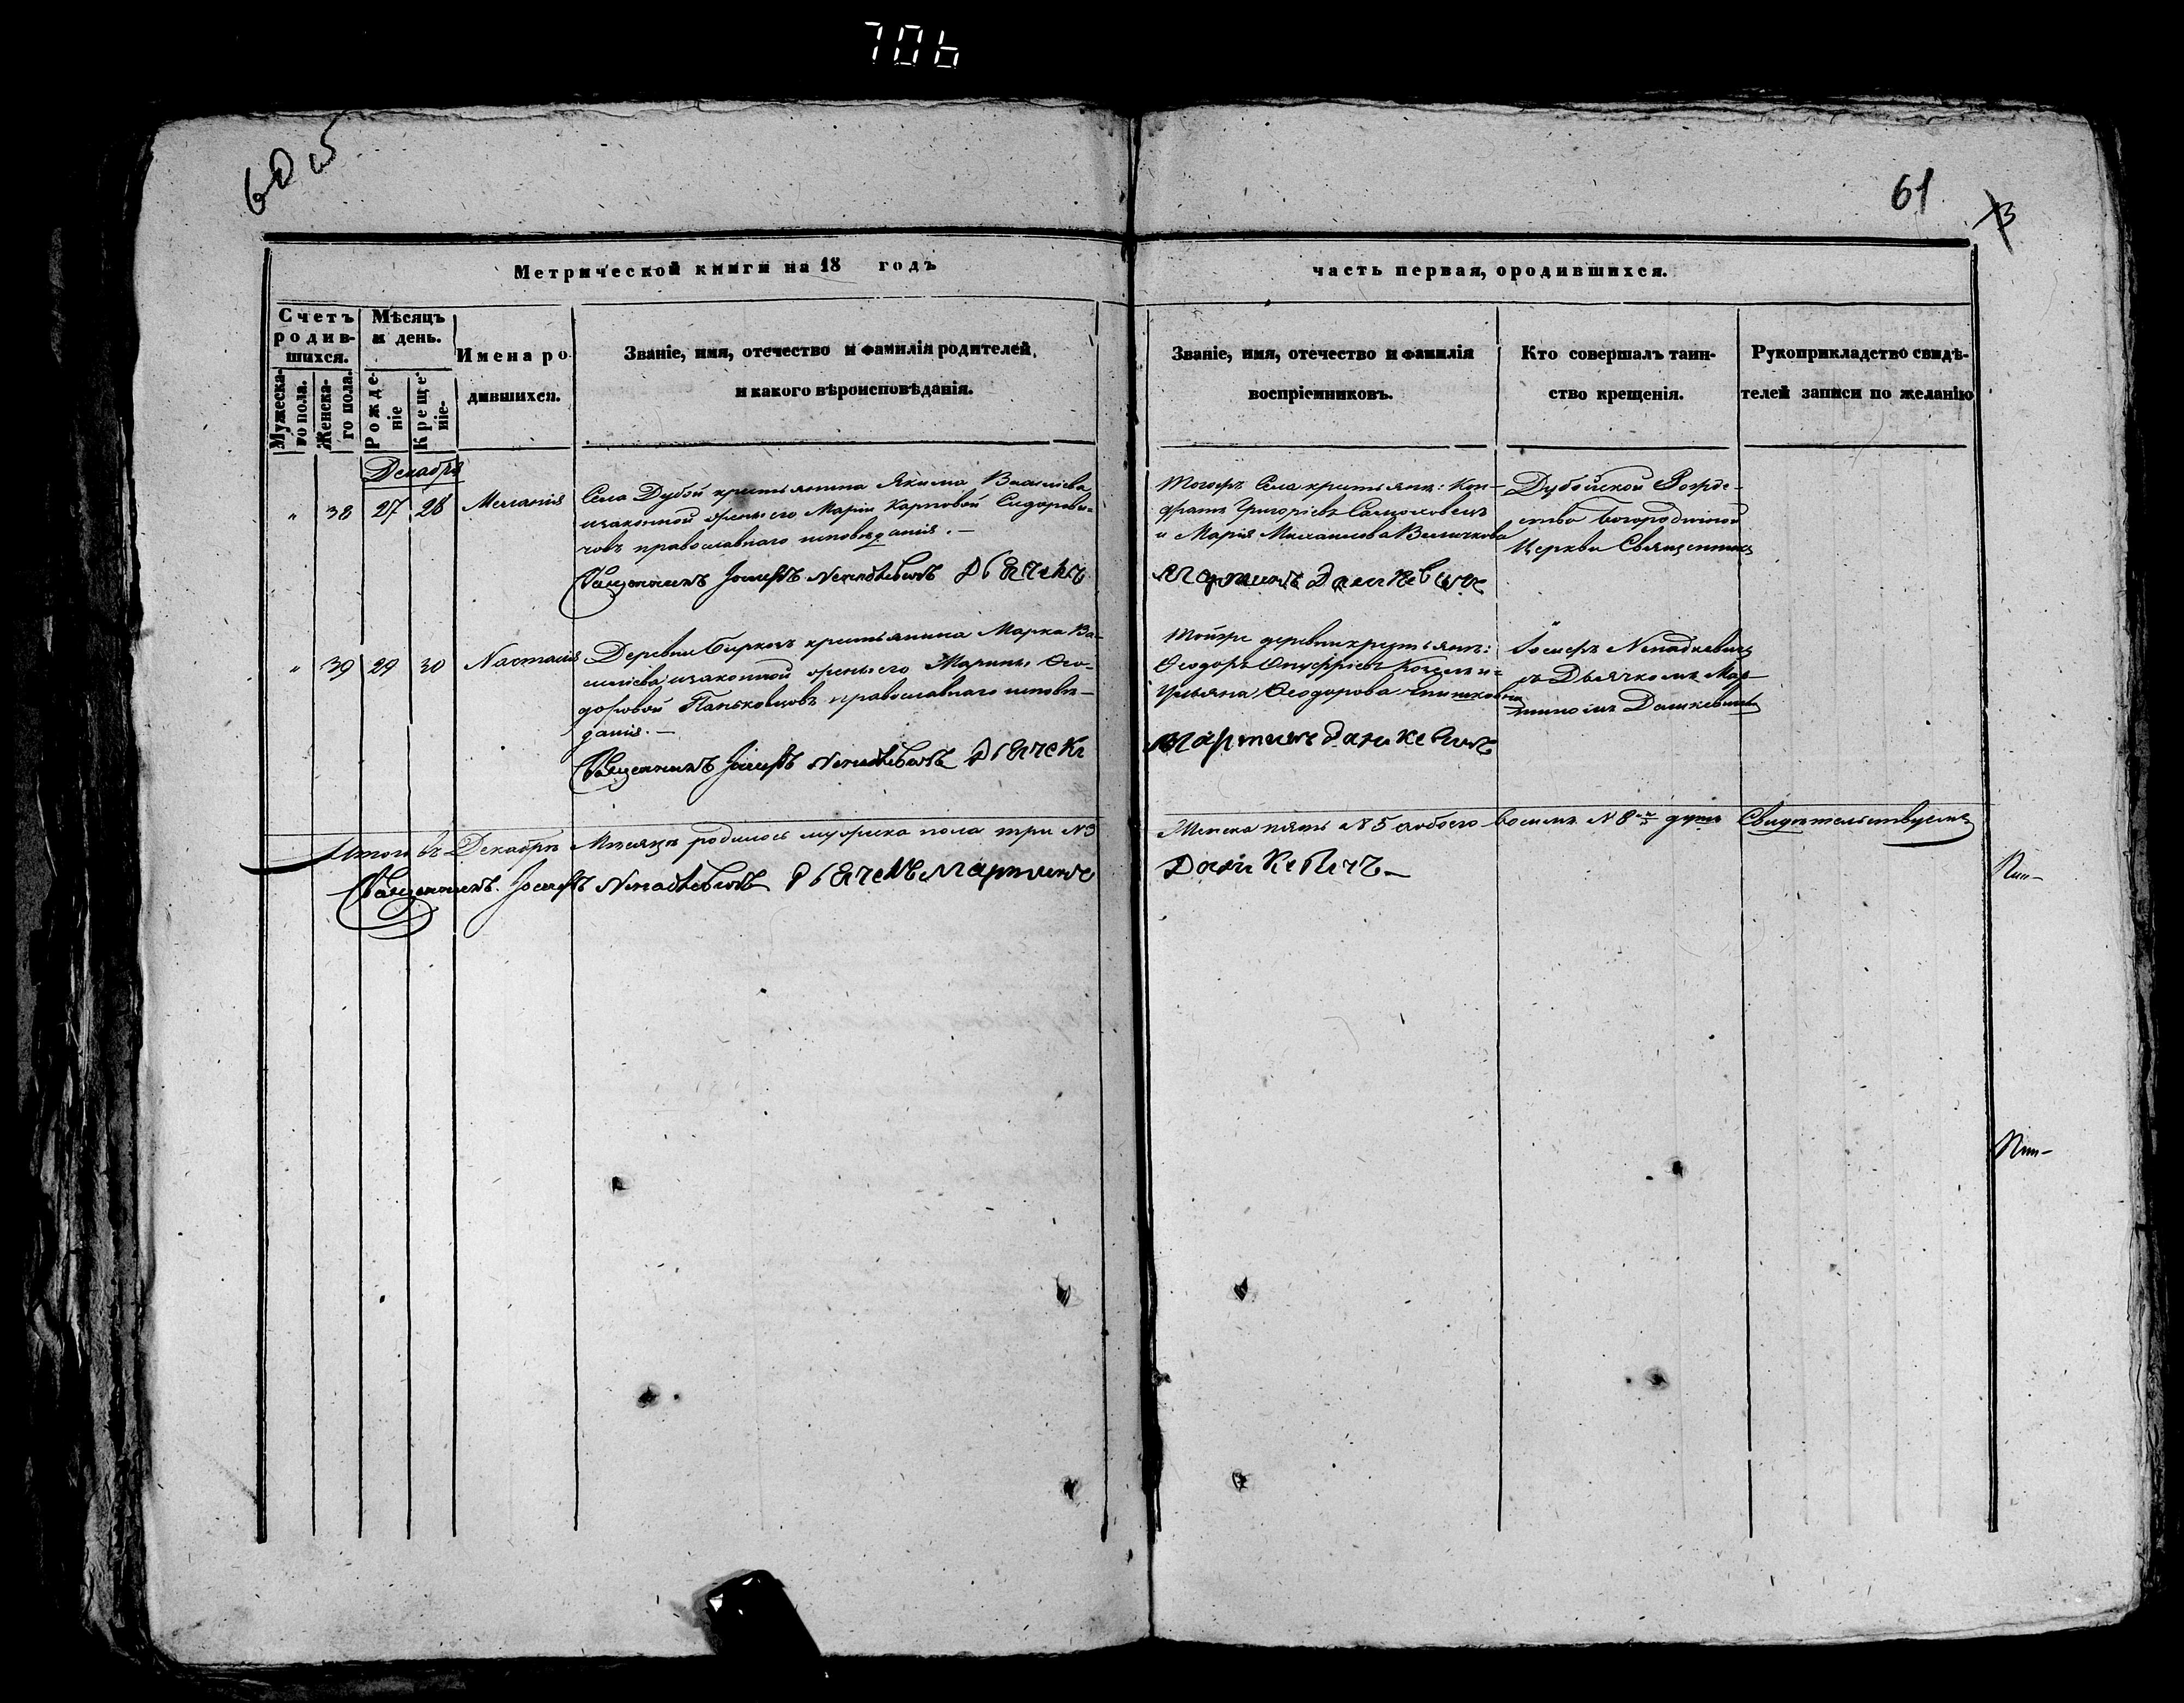 706
60 об
61
Метрической книги на 18 годъ
часть первая, ородившихся.
Счетъ родив-
шихся.
Мужеска-
го пола.
Женска-
го пола.
Мѣсяцъ
и день.
Рожде-
ніе
Креще-
ніе.
Имена ро
дившихся.
Званіе, имя, отечество и фамилія родителей,
и какого вѣроисповѣданія.
Званіе, имя, отечество и фамилія
воспріемниковъ.
Кто совершалъ таин-
ство крещенія.
Рукоприкладство свидѣ-
телей записи по желанію
Декабрь
„ 38 27 28 Мелания
Села Дубой крестьянина Якима Василіева
изаконной жены его Маріи Карповой Сидорови-
човъ православнаго исповѣданія. —
Священникъ Іосифъ Ненадкевичъ Дьячекъ
Тогожъ Села крестьяне: Кон-
дратъ Григоріевъ
и Марія Михаилова Величкова
Мартинъ Дашкевичъ
Дубойской Рожде-
ство Богородичной
Церкви Священникъ
„ 39 29 30 Настасия
Деревни крестьянина Марка Ва-
силіева изаконной жены его Марины Ѳео-
доровой Паньковцовъ православнаго исповѣ-
данія. —
Священникъ Іосифъ Ненадкевичъ Дьячекъ
Тойже деревни крестьяне:
Ѳеодоръ Онуфріевъ и
Ульяна Ѳеодорова
Мартинъ Дашкевичъ
Іосифъ Ненадкевичъ
съ Дьячкомъ Мар-
тиномъ Дашкевичемъ
Итого въ Декабрѣ Мѣсяцѣ родилось мужеска пола три №3
Женска пять №5 аобоего восемъ №8 душъ Свидѣтельствуемъ
Священникъ Іосифъ Ненадкевичъ Дьячекъ Мартинъ
Дашкевичъ —